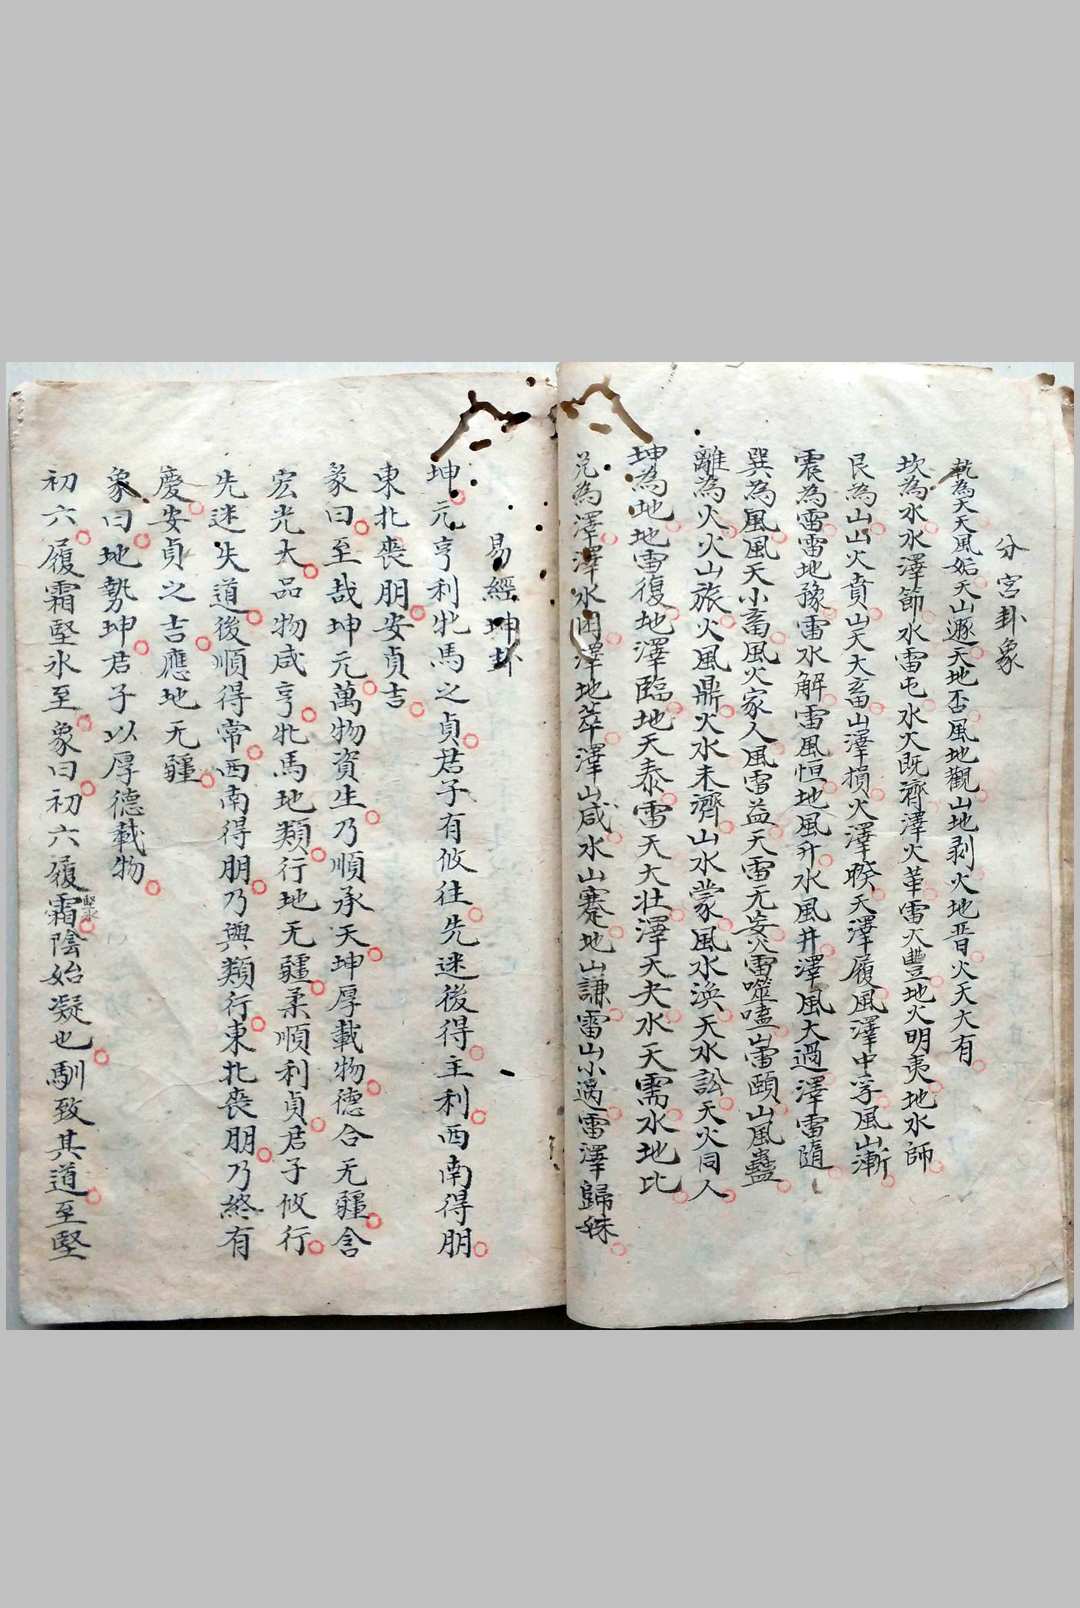 分宮卦象
乾為天天風姤天山遯天地否風地觀山地剥火地晋火天大有
坎為水水澤節水雷屯水火既濟澤火革雷火豐地火明夷地水師
艮為山山火賁山天大畜山澤損火澤睽天澤履風澤中孚風山漸
震為雷雷地豫雷水解雷風恒地風升水風井澤風大過澤雷隨
巽為風風天小畜風火家人風雷益天雷无妄火雷噬嗑山雷頤山風蠱
離為火火山旅火風鼎火水未濟山水蒙風水渙天水訟天火同人
坤為地地雷復地澤臨地天泰雷天大壯澤天夬水天需水地比
兌為澤澤水困澤地萃澤山咸水山蹇地山謙雷山小過雷澤歸妹
易經坤卦
坤元亨利牝馬之貞君子有攸往先迷後得主利西南得朋
東北喪朋安貞吉
彖曰至哉坤元萬物資生乃順承天坤厚載物德合无疆含
宏光大品物咸亨牝馬地類行地无疆柔順利貞君子攸行
先迷失道後順得常西南得朋乃與類行東北喪朋乃終有
慶安貞之吉應地无疆
象曰地勢坤君子以厚德載物
初六履霜堅冰至象曰初六履霜堅冰陰始凝也馴致其道至堅